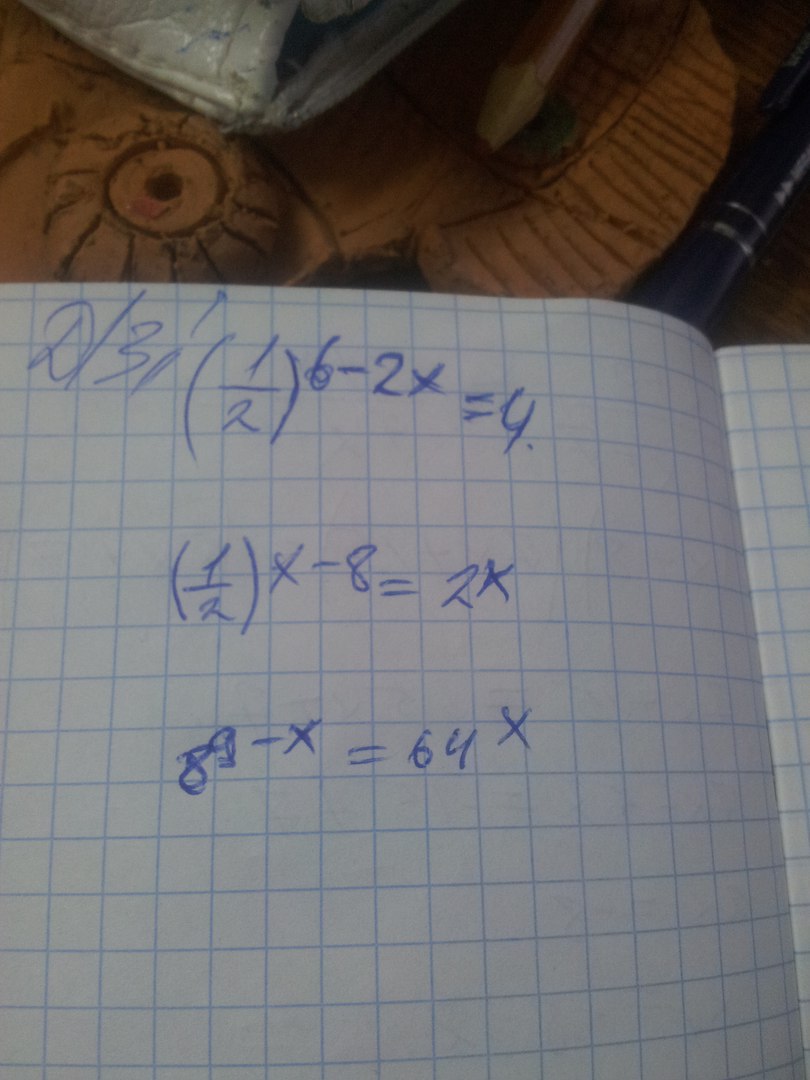 Д/З, (1/2)^6-2x = 4.
(1/2)^x-8 = 2^x
8^9-x = 64^x